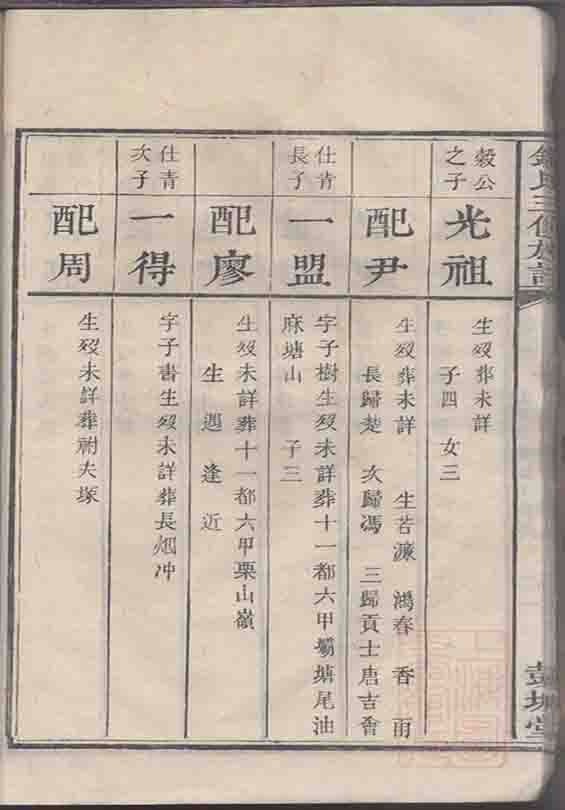 穀公
之子
光祖
生歿葬未詳
子四 女三
配尹
生歿葬未詳 生若濂 鴻春 香雨
長歸楚 次歸馮 三歸貢士唐吉會
仕青
長子
一盟
字子樹生歿未詳葬十一都六甲壩塘尾油
麻塘山 子三
配廖
生歿未詳葬十一都六甲栗山嶺
生 遇 逢 近
仕青
次子
一得
字子書生歿未詳葬長烟冲
配周
生歿未詳葬祔夫塚